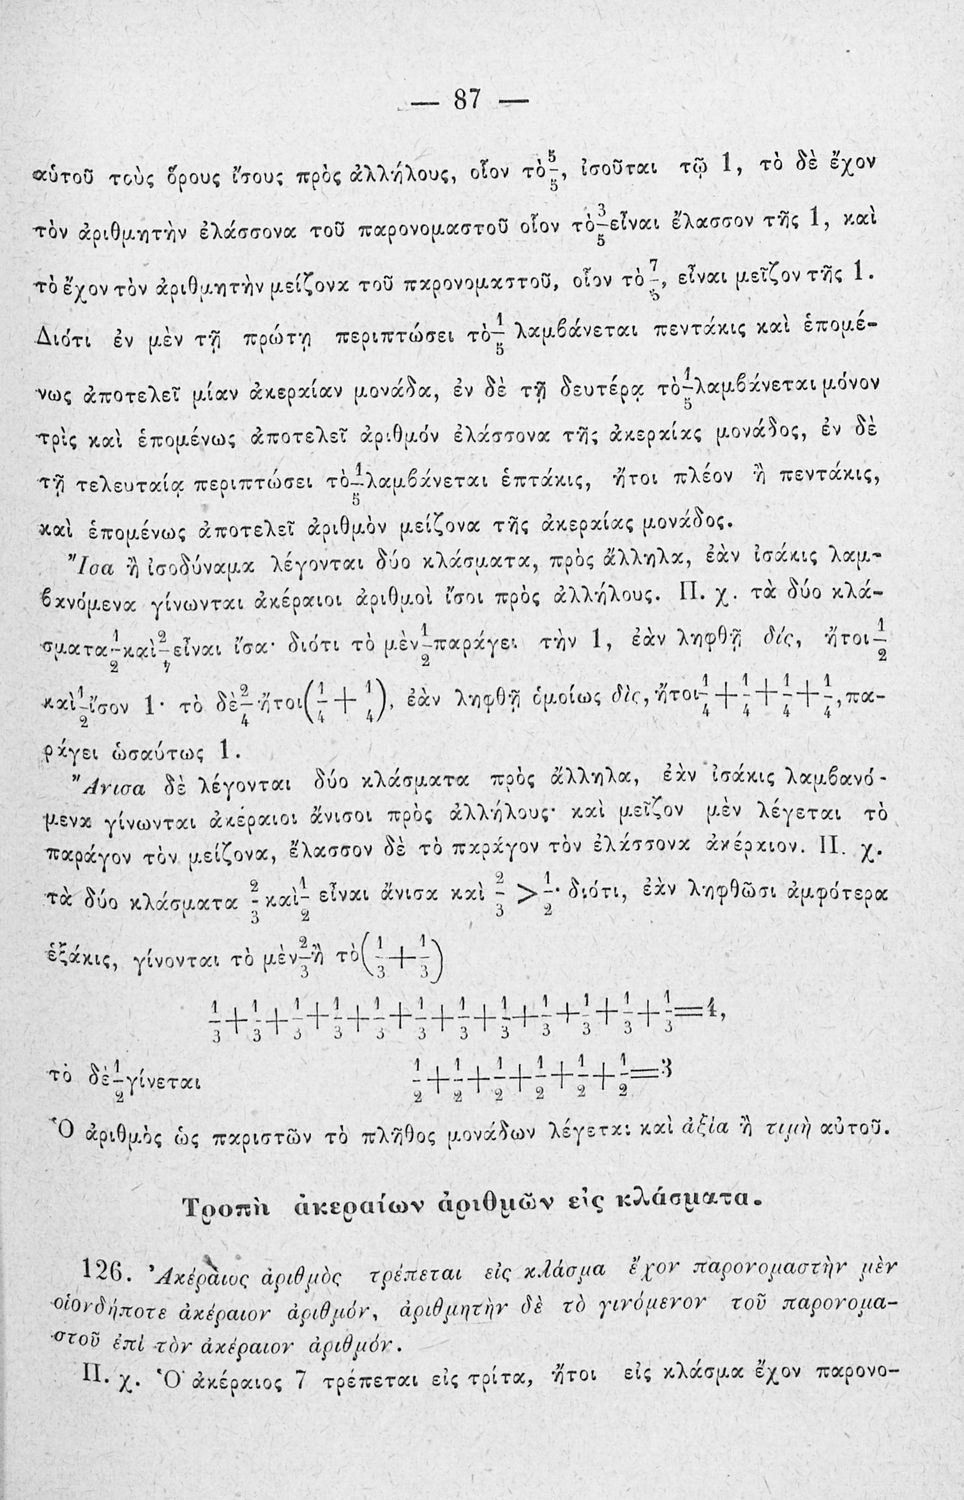 — 87 —
αὑτοῦ τοὺς ὅρους ἴσους πρὸς ἀλλήλους, οἷον τὸ 5/5, ἰσοῦται τῷ 1, τὸ δὲ ἔχον
τὸν ἀριθμητὴν ἐλάσσονα τοῦ παρονομαστοῦ οἷον τὸ 3/5 εἶναι ἔλασσον τῆς 1, καὶ
τὸ ἔχον τὸν ἀριθμητὴν μείζονα τοῦ παρονομαστοῦ, οἷον τὸ 7/5, εἶναι μεῖζον τῆς 1.
Διότι ἐν μὲν τῇ πρώτῃ περιπτώσει τὸ 1/5 λαμβάνεται πεντάκις καὶ ἑπομέ-
νως ἀποτελεῖ μίαν ἀκεραίαν μονάδα, ἐν δὲ τῇ δευτέρᾳ τὸ 1/5 λαμβάνεται μόνον
τρὶς καὶ ἑπομένως ἀποτελεῖ ἀριθμόν ἐλάσσονα τῆς ἀκεραίας μονάδος, ἐν δὲ
τῇ τελευταίᾳ περιπτώσει τὸ 1/5 λαμβάνεται ἑπτάκις, ἤτοι πλέον ἢ πεντάκις,
καὶ ἑπομένως ἀποτελεῖ ἀριθμὸν μείζονα τῆς ἀκεραίας μονάδος.
Ἴσα ἢ ἰσοδύναμα λέγονται δύο κλάσματα, πρὸς ἄλληλα, ἐὰν ἰσάκις λαμ-
βανόμενα γίνωνται ἀκέραιοι ἀριθμοὶ ἴσοι πρὸς ἀλλήλους. Π. χ. τὰ δύο κλά-
σματα 1/2 καὶ 2/4 εἶναι ἴσα· διότι τὸ μὲν 1/2 παράγει τὴν 1, ἐὰν ληφθῇ δίς, ἤτοι 1/2
καὶ 1/2 ἴσον 1· τὸ δὲ 2/4 ἤτοι (1/4 + 1/4), ἐὰν ληφθῇ ὁμοίως δὶς, ἤτοι 1/4 + 1/4 + 1/4 + 1/4, πα-
ράγει ὡσαύτως 1.
Ἄνισα δὲ λέγονται δύο κλάσματα πρὸς ἄλληλα, ἐὰν ἰσάκις λαμβανό-
μενα γίνωνται ἀκέραιοι ἄνισοι πρὸς ἀλλήλους· καὶ μεῖζον μὲν λέγεται τὸ
παράγον τὸν μείζονα, ἔλασσον δὲ τὸ παράγον τὸν ἐλάσσονα ἀκέραιον. Π. χ.
τὰ δύο κλάσματα 2/3 καὶ 1/2 εἶναι ἄνισα καὶ 2/3 > 1/2· διότι, ἐὰν ληφθῶσι ἀμφότερα
ἑξάκις, γίνονται τὸ μὲν 2/3 ἢ τὸ (1/3 + 1/3)
1/3 + 1/3 + 1/3 + 1/3 + 1/3 + 1/3 + 1/3 + 1/3 + 1/3 + 1/3 + 1/3 + 1/3 = 4,
τὸ δὲ 1/2 γίνεται 1/2 + 1/2 + 1/2 + 1/2 + 1/2 + 1/2 = 3
Ὁ ἀριθμὸς ὡς παριστῶν τὸ πλῆθος μονάδων λέγεται καὶ ἀξία ἢ τιμὴ αὐτοῦ.
Τροπὴ ἀκεραίων ἀριθμῶν εἰς κλάσματα.
126. Ἀκέραιος ἀριθμὸς τρέπεται εἰς κλάσμα ἔχον παρονομαστὴν μὲν
οἱονδήποτε ἀκέραιον ἀριθμόν, ἀριθμητὴν δὲ τὸ γινόμενον τοῦ παρονομα-
στοῦ ἐπὶ τὸν ἀκέραιον ἀριθμόν.
Π. χ. Ὁ ἀκέραιος 7 τρέπεται εἰς τρίτα, ἤτοι εἰς κλάσμα ἔχον παρονο-